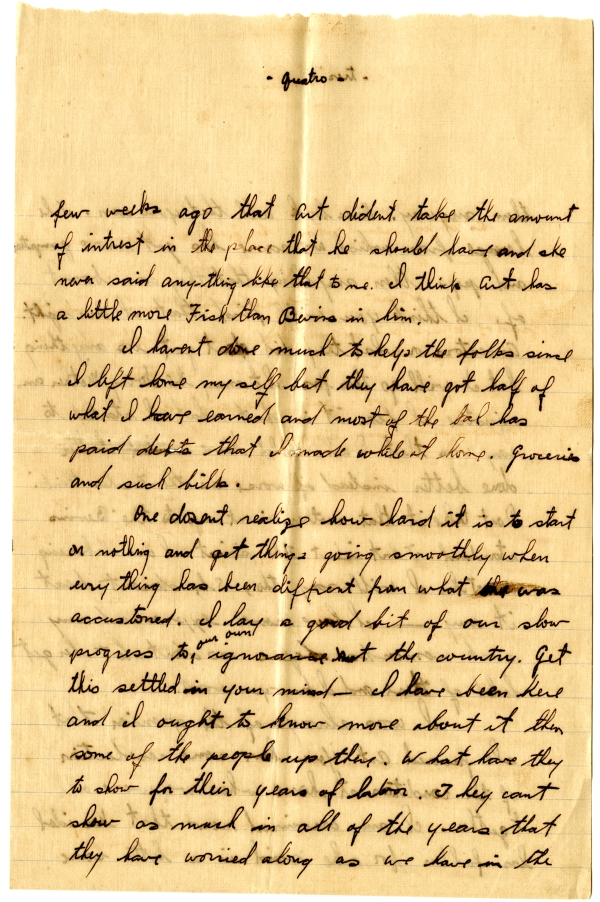 - quatro -
few weeks ago that Art dident take the amount
of intrest in the place that he should have and she
never said anything like that to me. I think Art has
a little more Fish than Bevins in him.
I havent done much to help the folks since
I left home my self but they have got half of
what I have earned and most of the bal has
paid debts that I made while at home. Groceries
and such bills.
One dosent realize how hard it is to start
on nothing and get things going smoothly when
every thing has been diffrent from what was
accustoned. I lay a good bit of our slow
progress to our own ignorance the country. Get
this settled in your mind — I have been here
and I ought to know more about it then
some of the people up there. What have they
to show for their years of labor. They cant
show as much in all of the years that
they have worried along as we have in the